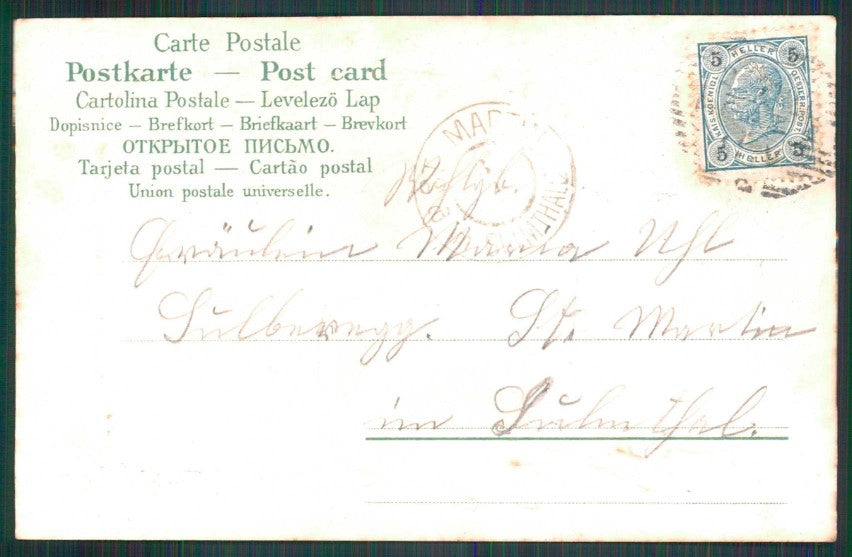 Carte Postale
Postkarte — Post card
Cartolina Postale — Levelező Lap
Dopisnice — Brefkort — Briefkaart — Brevkort
ОТКРЫТОЕ ПИСЬМО.
Tarjeta postal — Cartão postal
Union postale universelle.
5 HELLER 5
KAIS. KOENIGL. OESTERR. POST.
5 HELLER 5
Fräulein Maria Uhl
Sulberegg. St. Martin
im Sulmthal.